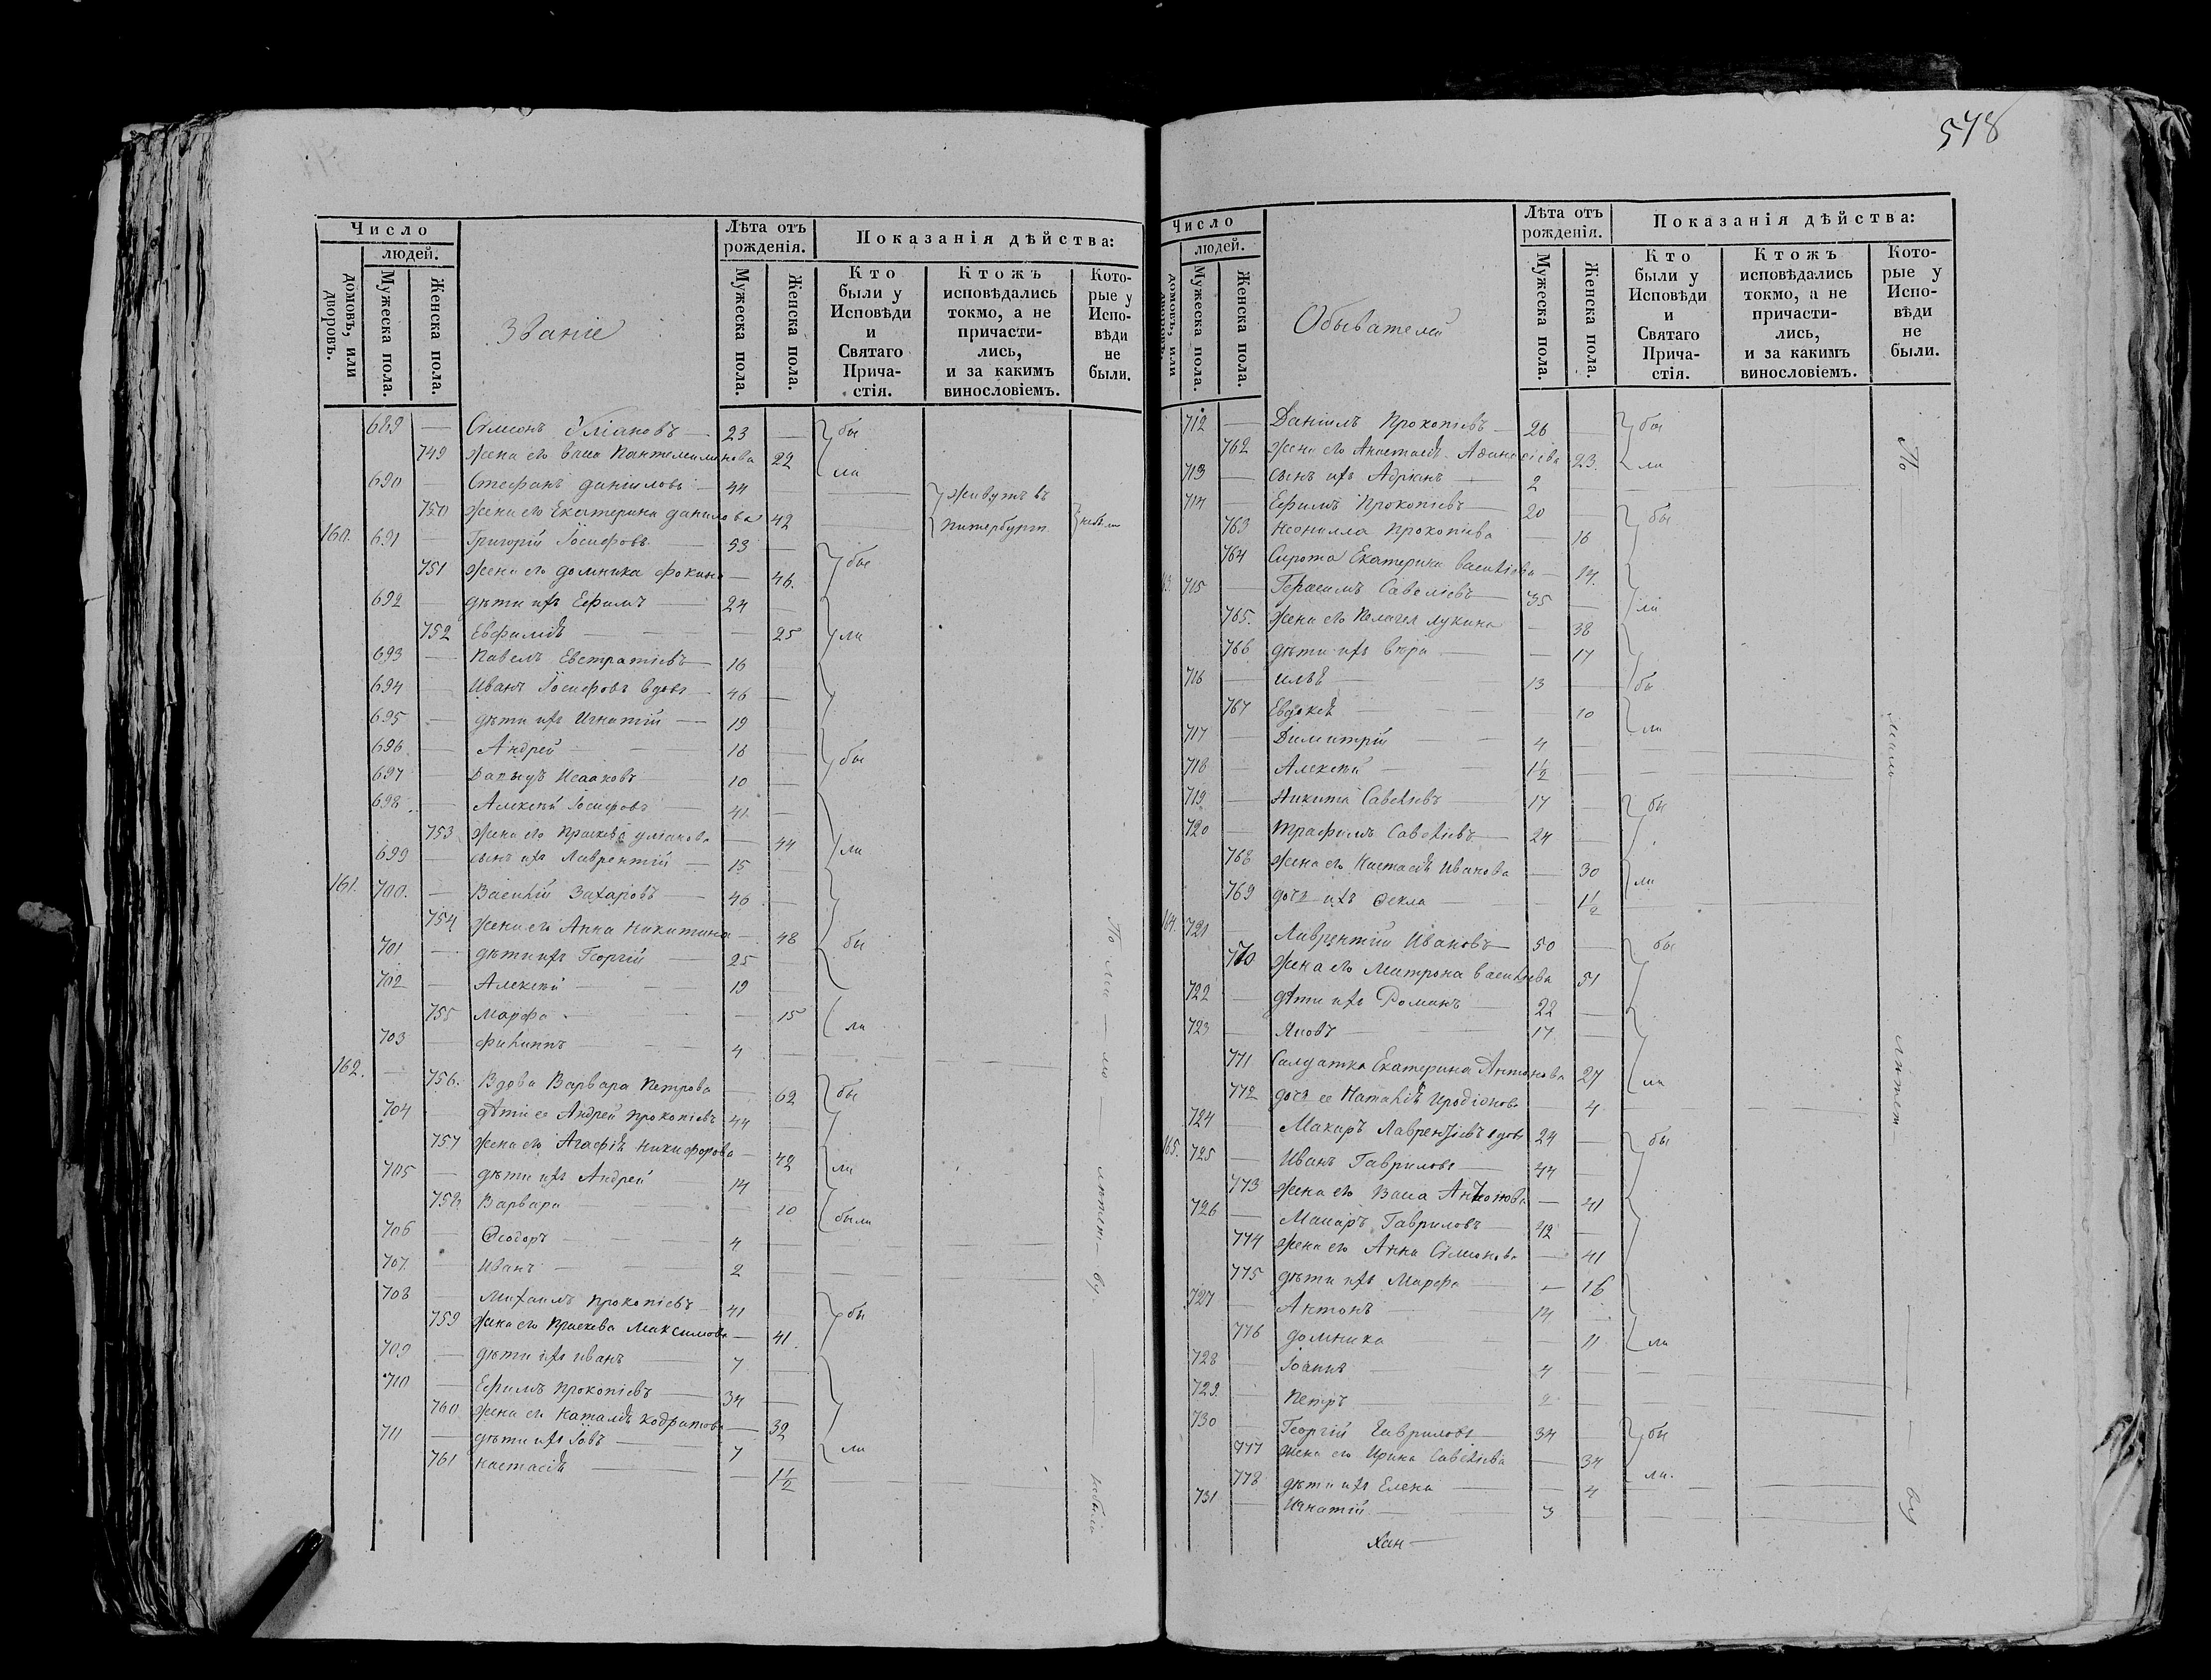 578
Число
людей.
домовъ, или дворовъ.
Мужеска пола.
Женска пола.
Званіе
Лѣта отъ рожденія.
Мужеска пола.
Женска пола.
Показанія дѣйства:
Кто были у Исповѣди и Святаго Прича-стія.
Ктожъ исповѣдались токмо, а не причасти-лись, и за какимъ винословіемъ.
Кото-рые у Испо-вѣди не были.
689 — Симіонъ Уліановъ — 23 — бы
749 жена его Васа Пантелимонова 22 ли
690 — Стефанъ Даниловъ — 44 — живутъ въ
750 жена его Екатерина Данилова 42 Питербурги небыли
160. 691 — Григорій Іосифовъ — 53 —
751 жена его Домника Фокина — 46. бы
692 — дѣти ихъ Ефимъ — 24 —
752 Евфимія — — 25 ли
693 — Павелъ Евстратіевъ — 16 —
694 — Иванъ Іосифовъ вдовъ — 46 —
695 — дѣти ихъ Игнатій — 19 —
696 — Андрей — 16 — бы
697 — Давыдъ Исааковъ 10 —
698 — Алексѣй Іосифовъ — 41 —
753 жена его Праскева Уліанова — 44 ли
699 — сынъ ихъ Лаврентій — 15
161. 700. — Василій Захаровъ — 46 —
754 жена его Анна Никитина — 48 бы
701 — дѣти ихъ Георгій — 25 —
702 — Алексѣй — 19 —
755 Марфа — — 15 ли
703 — Филиппъ — 4 —
162. — 756. Вдова Варвара Петрова — 62 бы
704 — дѣти ее Андрей Прокопіевъ 44 —
757 жена его Агафія Никифорова — 42 ли
705 — дѣти ихъ Андрей — 14 —
758 Варвара — — 10 были
706 — Ѳеодоръ — 4 —
707 — Иванъ — 2 —
708 — Михаилъ Прокопіевъ — 41 — бы
759 жена его Праскева Максимова — 41
709 — дѣти ихъ Иванъ — 7 —
710 — Ефимъ Прокопіевъ — 34 —
760 жена его Наталія Кодратова — 32
711 — дѣти ихъ Іовъ — 7 — ли
761 Настасія — — 1½
По ма — ло — лѣтст — ву — небыли
Число
людей.
домовъ, или
Мужеска пола.
Женска пола.
Обывателей
Лѣта отъ рожденія.
Мужеска пола.
Женска пола.
Показанія дѣйства:
Кто были у Исповѣди и Святаго Прича-стія.
Ктожъ исповѣдались токмо, а не причасти-лись, и за какимъ винословіемъ.
Кото-рые у Испо-вѣди не были.
712 — Даніилъ Прокопіевъ — 26 — бы
762 жена его Анастасія Афанасіева 23. ли
713 — сынъ ихъ Адріянъ — 2
714 — Ефимъ Прокопіевъ — 20 — бы
763 Неонилла Прокопіева — 16
764 Сирота Екатерина Васильева — 14.
715 — Герасимъ Савеліевъ — 35 — ли
765. жена его Пелагея Лукина — 38
766 дѣти ихъ Вѣра — — 17
716 — Илья — 13 — бы
767 Евдокія — 10 ли
717 — Димитрій — 4 —
718 — Алексѣй — 1½ —
719 — Никита Савеліевъ — 17 — бы
720 — Трафимъ Савеліевъ — 24 —
768 жена его Настасія Иванова — 30 ли
769 дочь ихъ Ѳекла — — 1½
164. 721 — Лаврентій Ивановъ — 50 — бы
770 жена его Матрона Васильева 51
722 — дѣти ихъ Романъ — 22 —
723 — Яковъ — 17 —
771 Салдатка Екатерина Антонова 27 ли
772 дочь ее Наталія Иродіонова — 4
724 — Макаръ Лаврентіевъ вдовъ 24 — бы
165. 725 — Иванъ Гавриловъ — 44 —
773 жена его Васа Антонова — 41
726 — Макаръ Гавриловъ — 42 —
774 жена его Анна Симіонова — 41
775 дѣти ихъ Марфа — — 16
727 — Антонъ — 14 —
776 Домника — — 11 ли
728 — Іоаннъ — 4 —
729. — Петръ — 2 —
730 — Георгій Гавриловъ — 34 — бы
777 жена его Ирина Савеліева — 34
778 дѣти ихъ Елена — — 4 ли.
731 — Игнатій — 3 —
По мало — лѣтст — ву